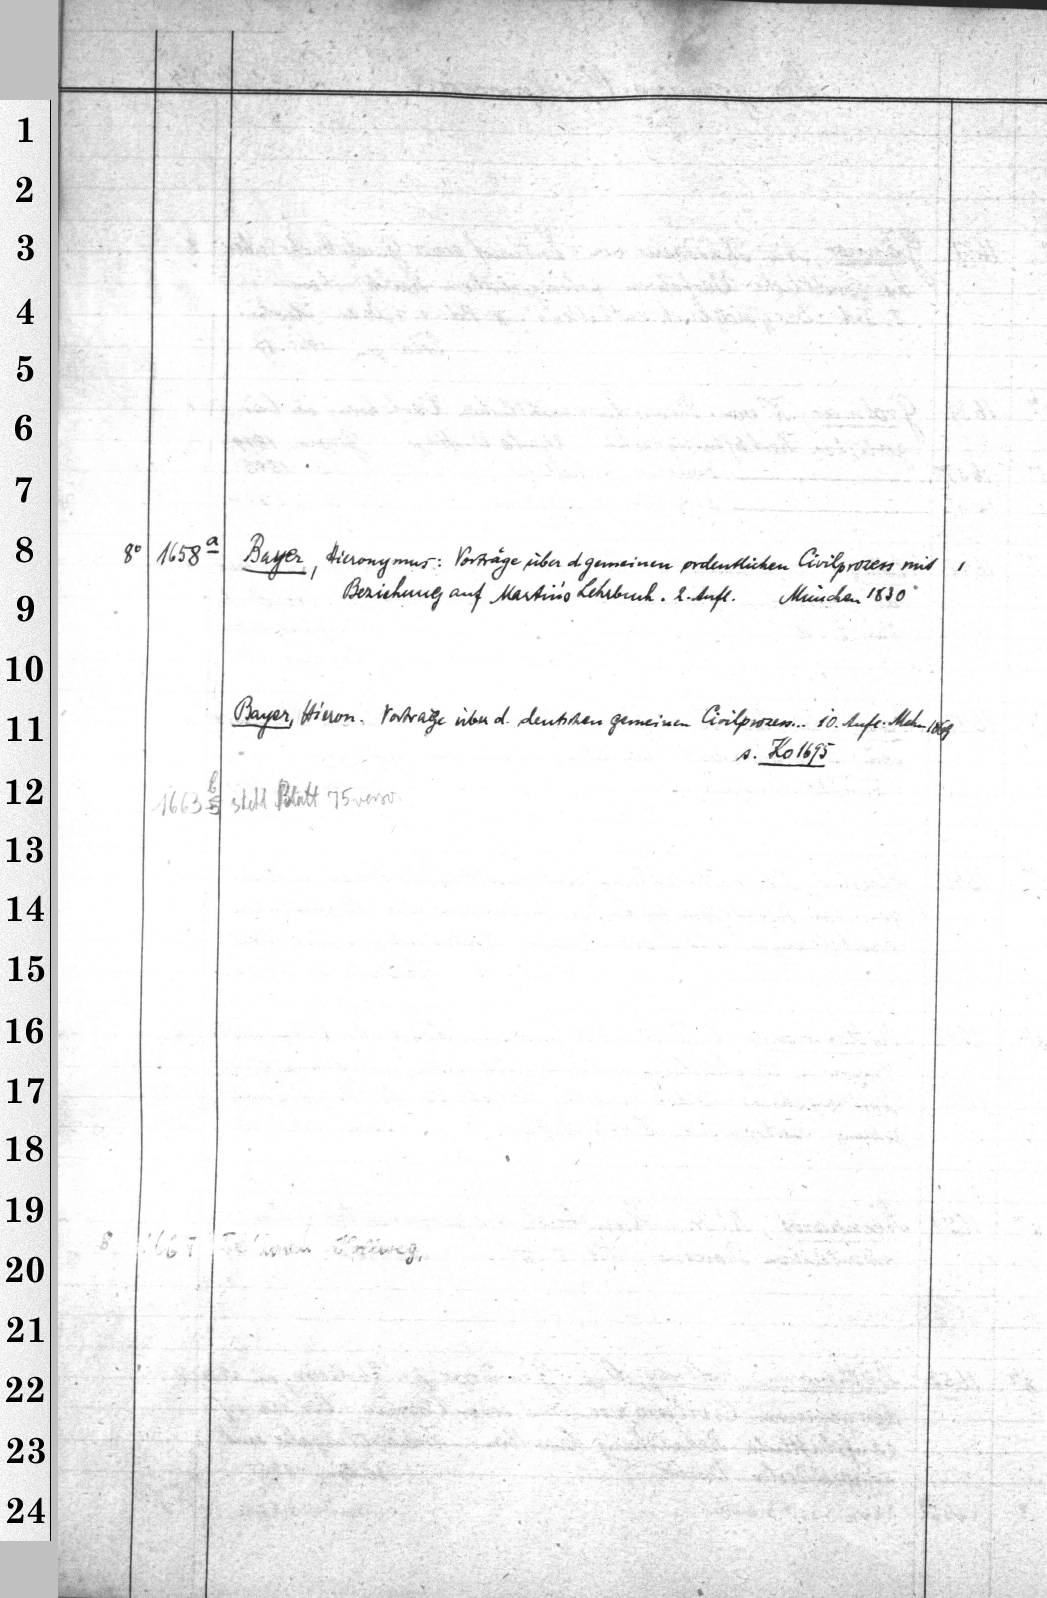 1
2
3
4
5
6
7
8
8° 1658 a Bayer, Hieronymus: Vorträge über d gemeinen ordentlichen Civilprozess mit 1
9
Beziehung auf Martin's Lehrbuch. 2. Aufl. München 1830
10
11
Bayer, Hieron. Vorträge über d. deutschen gemeinen Civilprozess... 10. Aufl. Mchn 1869
s. Ko 1695
12
1663 steht Blatt 75 verso
13
14
15
16
17
18
19
20
21
22
23
24